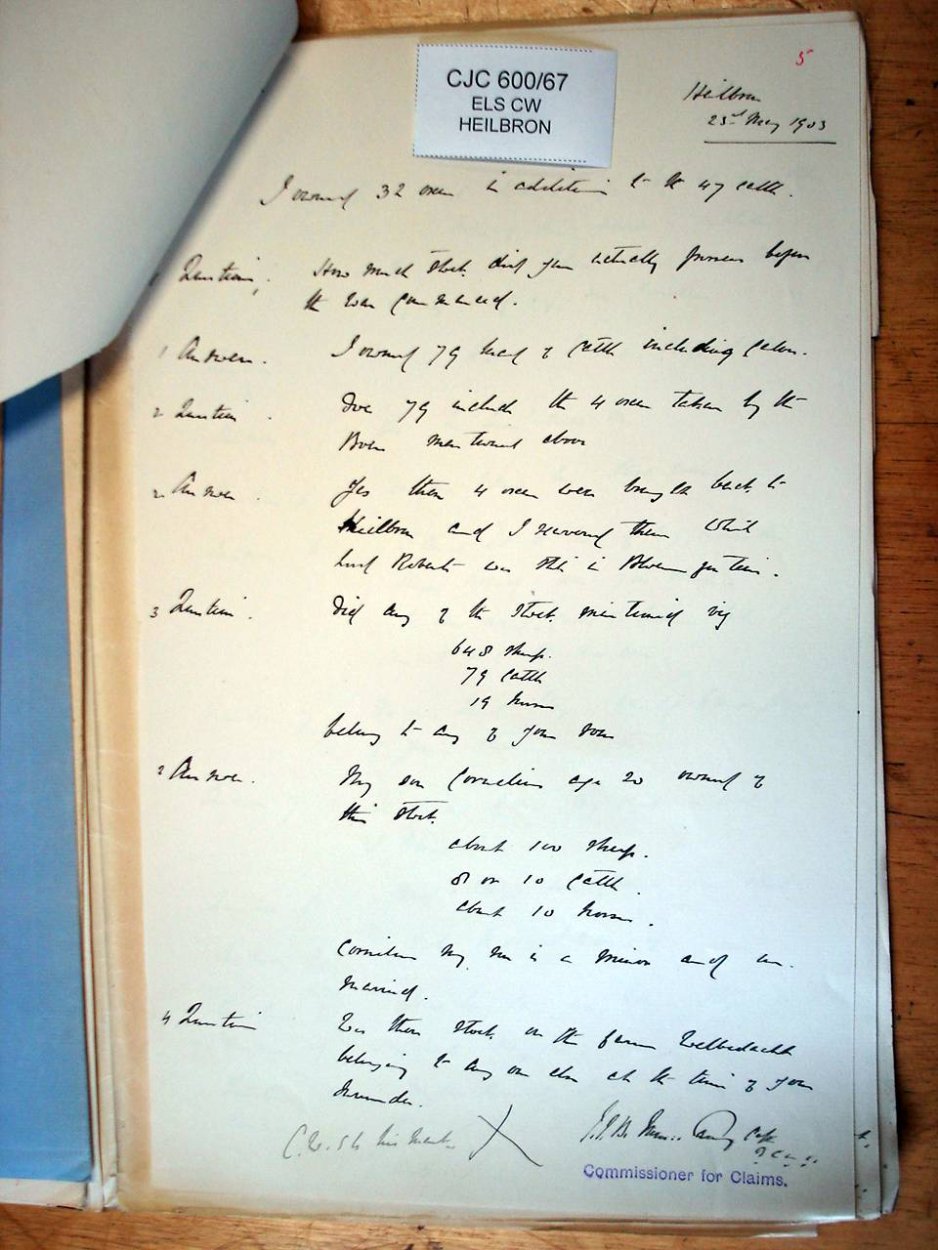 5
CJC 600/67
ELS CW
HEILBRON
Heilbron
23rd May 1903
I owned 32 oxen in addition to the 47 cattle.
Question. How much stock did you actually possess before
the war commenced.
1 Answer. I owned 79 head of cattle including calves.
2 Question. Does 79 include the 4 oxen taken by the
Boers mentioned above
2 Answer. Yes these 4 oxen were brought back to
Heilbron and I received them whilst
Lord Roberts was still in Bloemfontein.
3 Question. Did any of the stock mentioned viz
648 sheep.
79 cattle
19 horses
belong to any of your sons
3 Answer. My son Cornelius age 20 owned of
this stock.
about 100 sheep.
8 or 10 cattle.
about 10 horses.
Cornelius my son is a minor and un-
married.
4 Question Was there stock on the farm Welbedacht
belonging to any one else at the time of your
surrender.
C.W. Els his mark X
Commissioner for Claims.